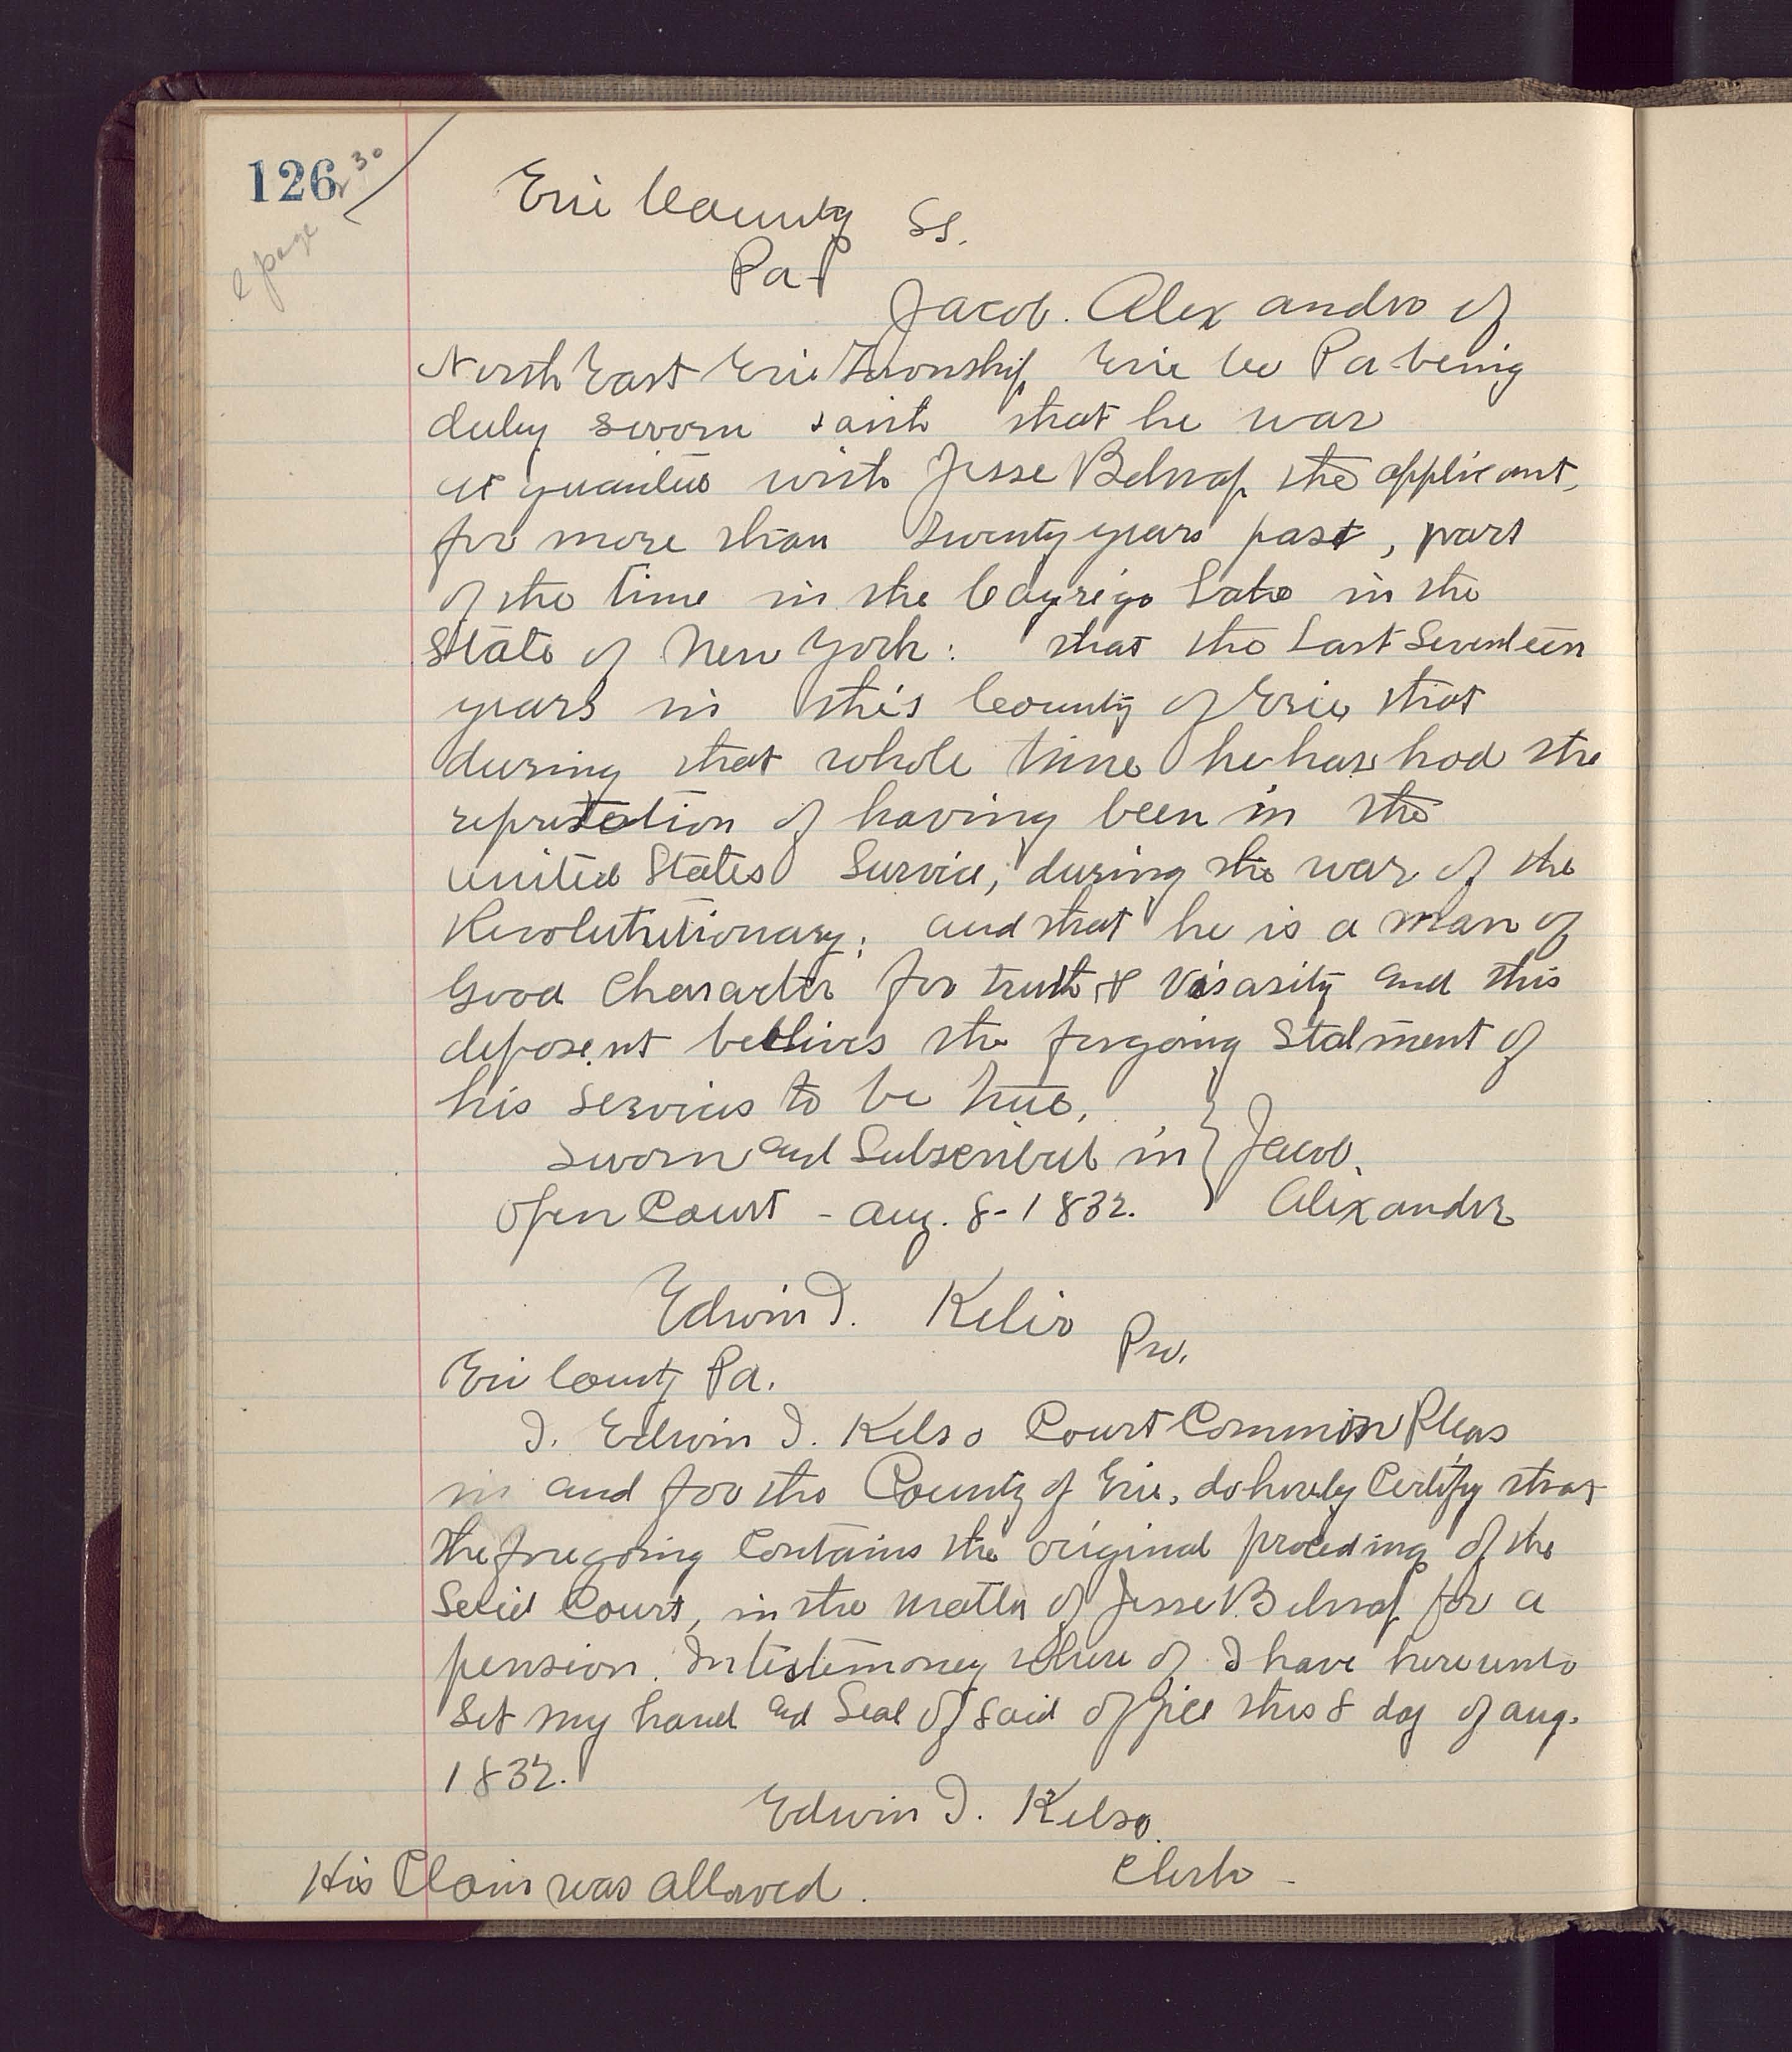 126
30
page
Erie County SS.
Pa
Jacob. Alexander of
North East Erie Township Erie Co Pa being
duly sworn saith that he was
acquainted with Jesse Belnap the applicant,
for more than twenty years past, part
of the time in the in the
State of New York: that the Last Seventeen
years in this County of Erie, that
during that whole time he has had the
repretetion of having been in the
United States Service, during the war of the
Revolututionary; and that he is a man of
Good Chararcter for truth & Vasasity and this
deposent bellives the forgoing Statment of
his Services to be true.
Sworn and Subscribed in } Jacob.
Open Court - Aug. 8-1832. Alexander
Edwin J. Kelso
Pro.
Erie County Pa.
I. Edwin J. Kelso Court Common Pleas
in and for the County of Erie, do hereby Certify that
the foregoing Contains the original proceding of the
Said Court, in the matter of Jesse Belnap for a
pension. In testemoney where of I have hereunto
Set my hand and Seal of said office this 8 day of Aug.
1832.
Edwin J. Kelso.
Clerk -
His Claim was allowed.